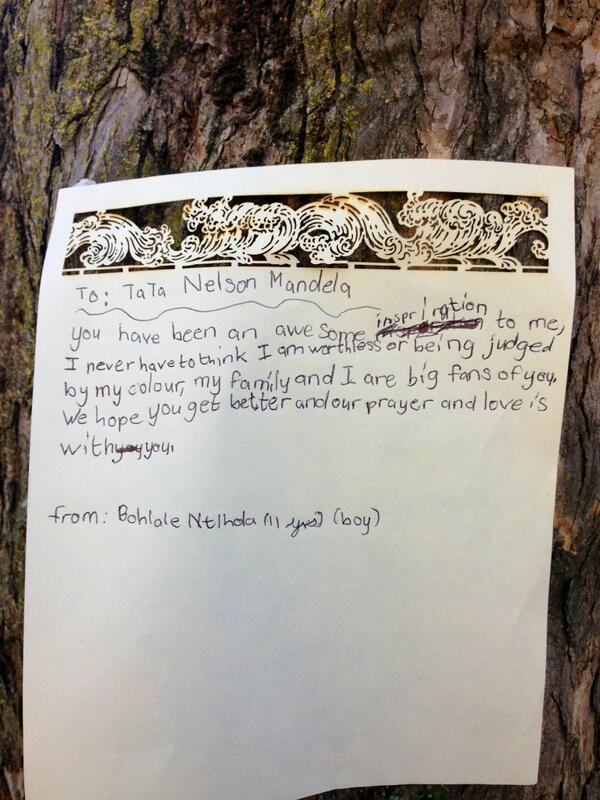 To: TaTa Nelson Mandela
you have been an awesome inspriration to me,
I never have to think I am worthless or being judged
by my colour, my family and I are big fans of you.
We hope you get better and our prayer and love is
with you.
from: Bohlale Ntlhola (11 yrs) (boy)